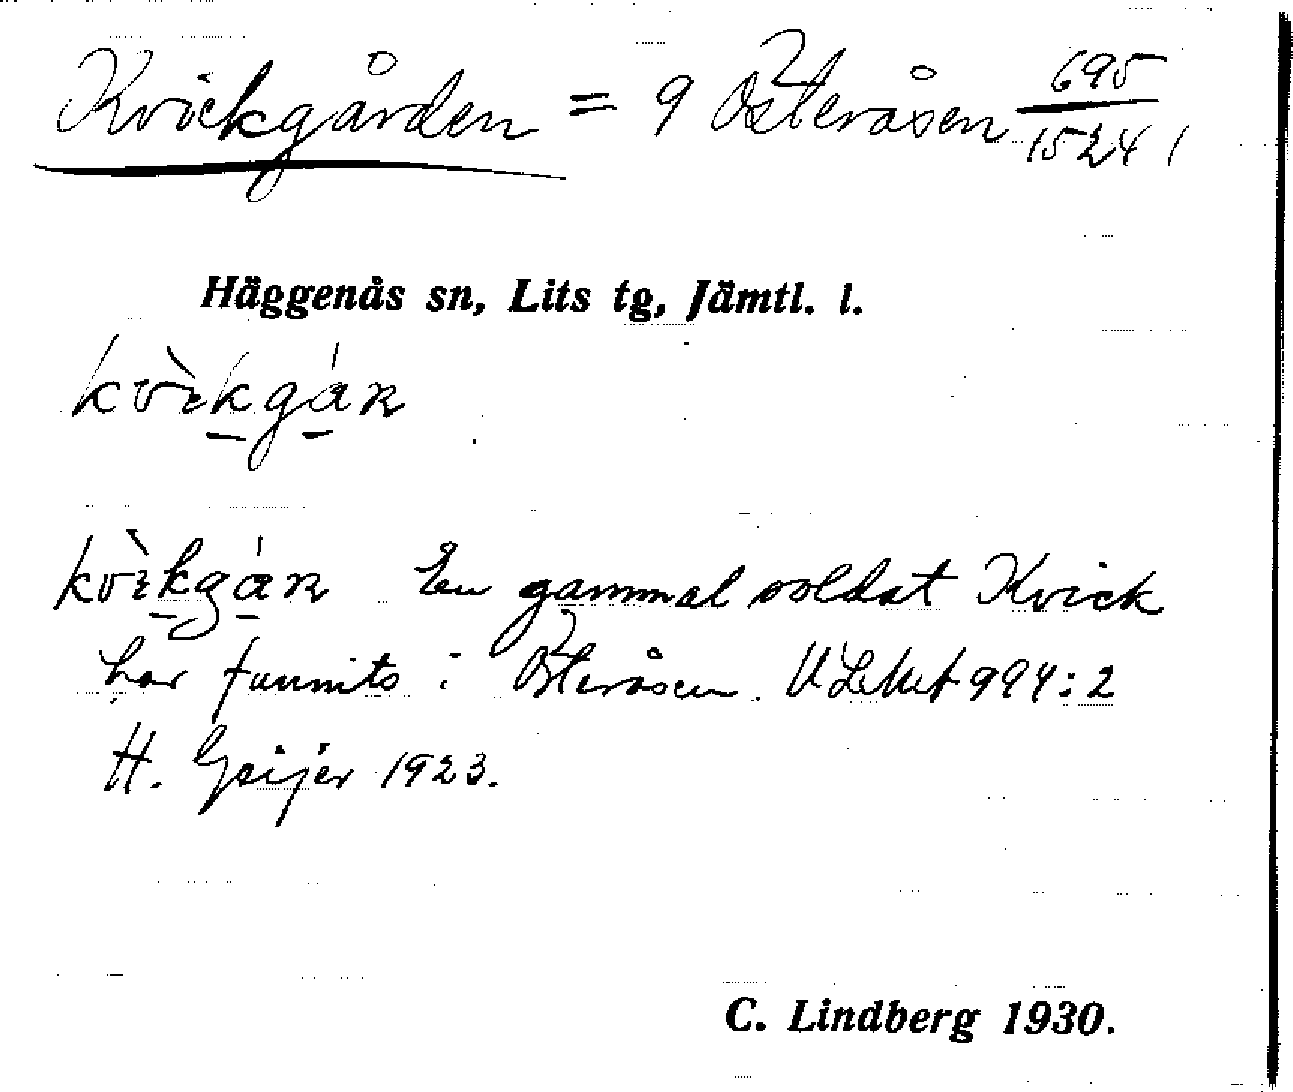 Kvickgården = 9 Österåsen 695/15241
Häggenås sn, Lits tg, Jämtl. l.
kvìkgáʀ
kvìkgáʀ En gammal soldat Kvick
har funnits i Österåsen. ULMA 994:2
H. Geijer 1923.
C. Lindberg 1930.